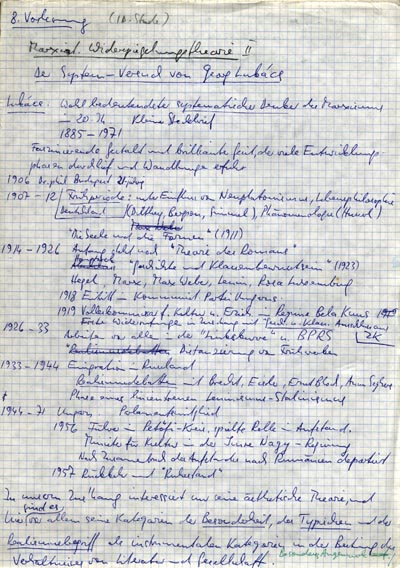 8. Vorlesung (10. Stunde)
Marxist. Widerspiegelungstheorie II
Der System-Versuch von Georg Lukács
Lukács: Wohl bedeutendster systematischer Denker des Marxismus
im 20. Jh. Kleiner Steckbrief
1885 – 1971
Faszinierende Gestalt und brillanter Geist, der viele Entwicklungs-
phasen durchlief und Wandlungen erfuhr
1906 Dr. phil. Budapest
1907 – 12 Frühperiode: unter Einfluss von Neuplatonismus, Lebensphilosophie
Deutschland (Dilthey, Bergson, Simmel), Phänomenologie (Husserl)
Max Weber
"Die Seele und die Formen" (1911)
1914 – 1926 "Theorie des Romans"
"Geschichte und Klassenbewusstsein" (1923)
Hegel, Marx, Max Weber, Lenin, Rosa Luxemburg
1918 Eintritt in Kommunist. Partei Ungarns
1919 Volkskommissar f. Kultur u. Erzieh. in Regime Bela Kuns 1919
1926 – 33 Arbeiten vor allem in der "Linkskurve" u. BPRS
Realismusdebatten Distanzierung von Frühwerken
1933 – 1944 Emigration in Russland
Realismusdebatten mit Brecht, Eisler, Ernst Bloch, Anna Seghers
Phase eines linientreuen Leninismus-Stalinismus
1944 – 71 Ungarn. Parlamentsmitglied
1956 Führer im Petöfi-Kreis, spielte Rolle im Aufstand.
Minister für Kultur in der Imre Nagy-Regierung
Nach Zusammenbruch des Aufstandes nach Rumänien deportiert
1957 Rückkehr und "Ruhestand"
In unserem Zus'hang interessiert uns seine ästhetische Theorie, und
hier vor allem sind es seine Kategorien der Besonderheit, des Typischen und der
Realismusbegriff als instrumentalen Kategorien in der Bestimmung des
Verhältnisses von Literatur und Gesellschaft.